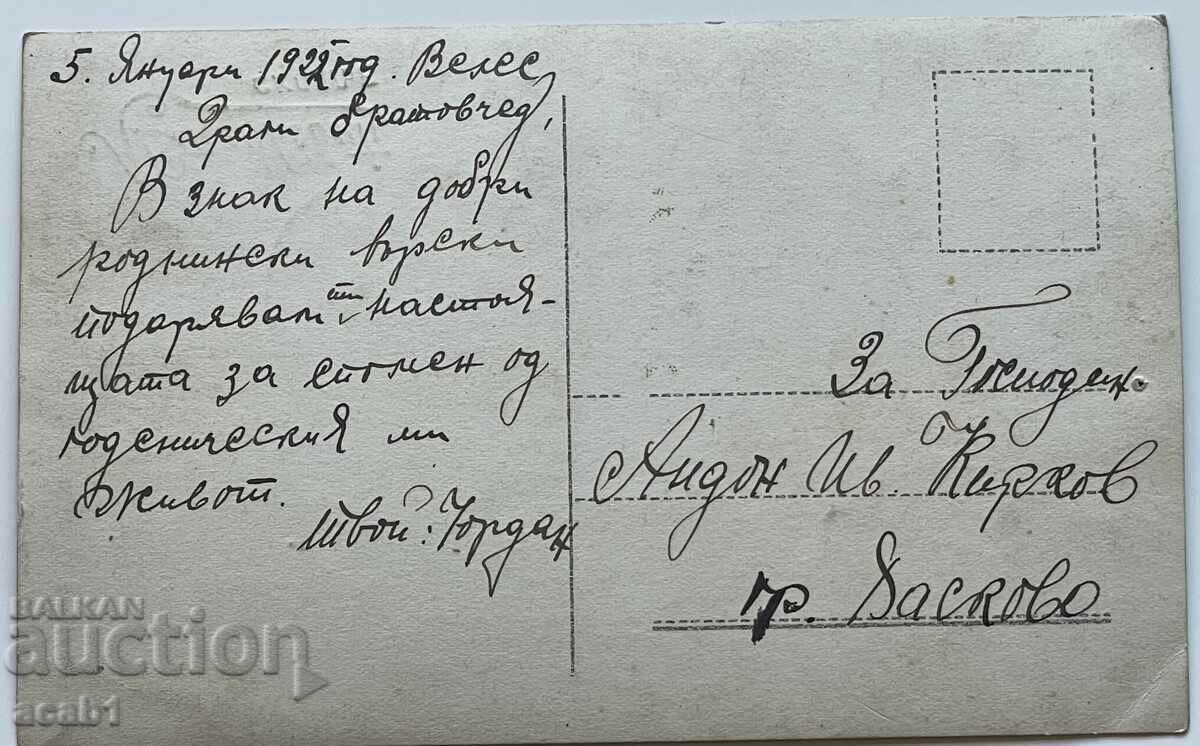 5. Януари 1922 год. Велес
Драги братовчед,
В знак на добри
роднински върски
подарявам ти настоя-
щата за спомен од
годеническия ми
живот.
Твой: Юрдан
За Господин
Андон Ив. Киржов
гр. Васково
BALKAN
auction
acab1